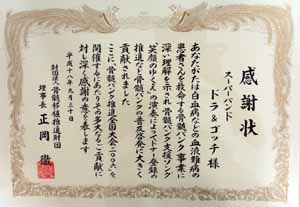 感謝状
スーパーバンド
ドラ&ゴッチ様
あなたがたは白血病などの血液難病の
患者さんを救命する骨髄バンク事業に
深い理解を示され骨髄バンク支援ソング
「笑顔のゆくえ」演奏によってドナー登録の
推進など骨髄バンクの普及啓発に大きく
貢献されました
ここに「骨髄バンク推進全国大会二〇〇六」を
開催するにあたりその多大なるご貢献に
対し深く感謝の意を表します
平成十八年九月三十日
財団法人骨髄移植推進財団
理事長 正岡 徹